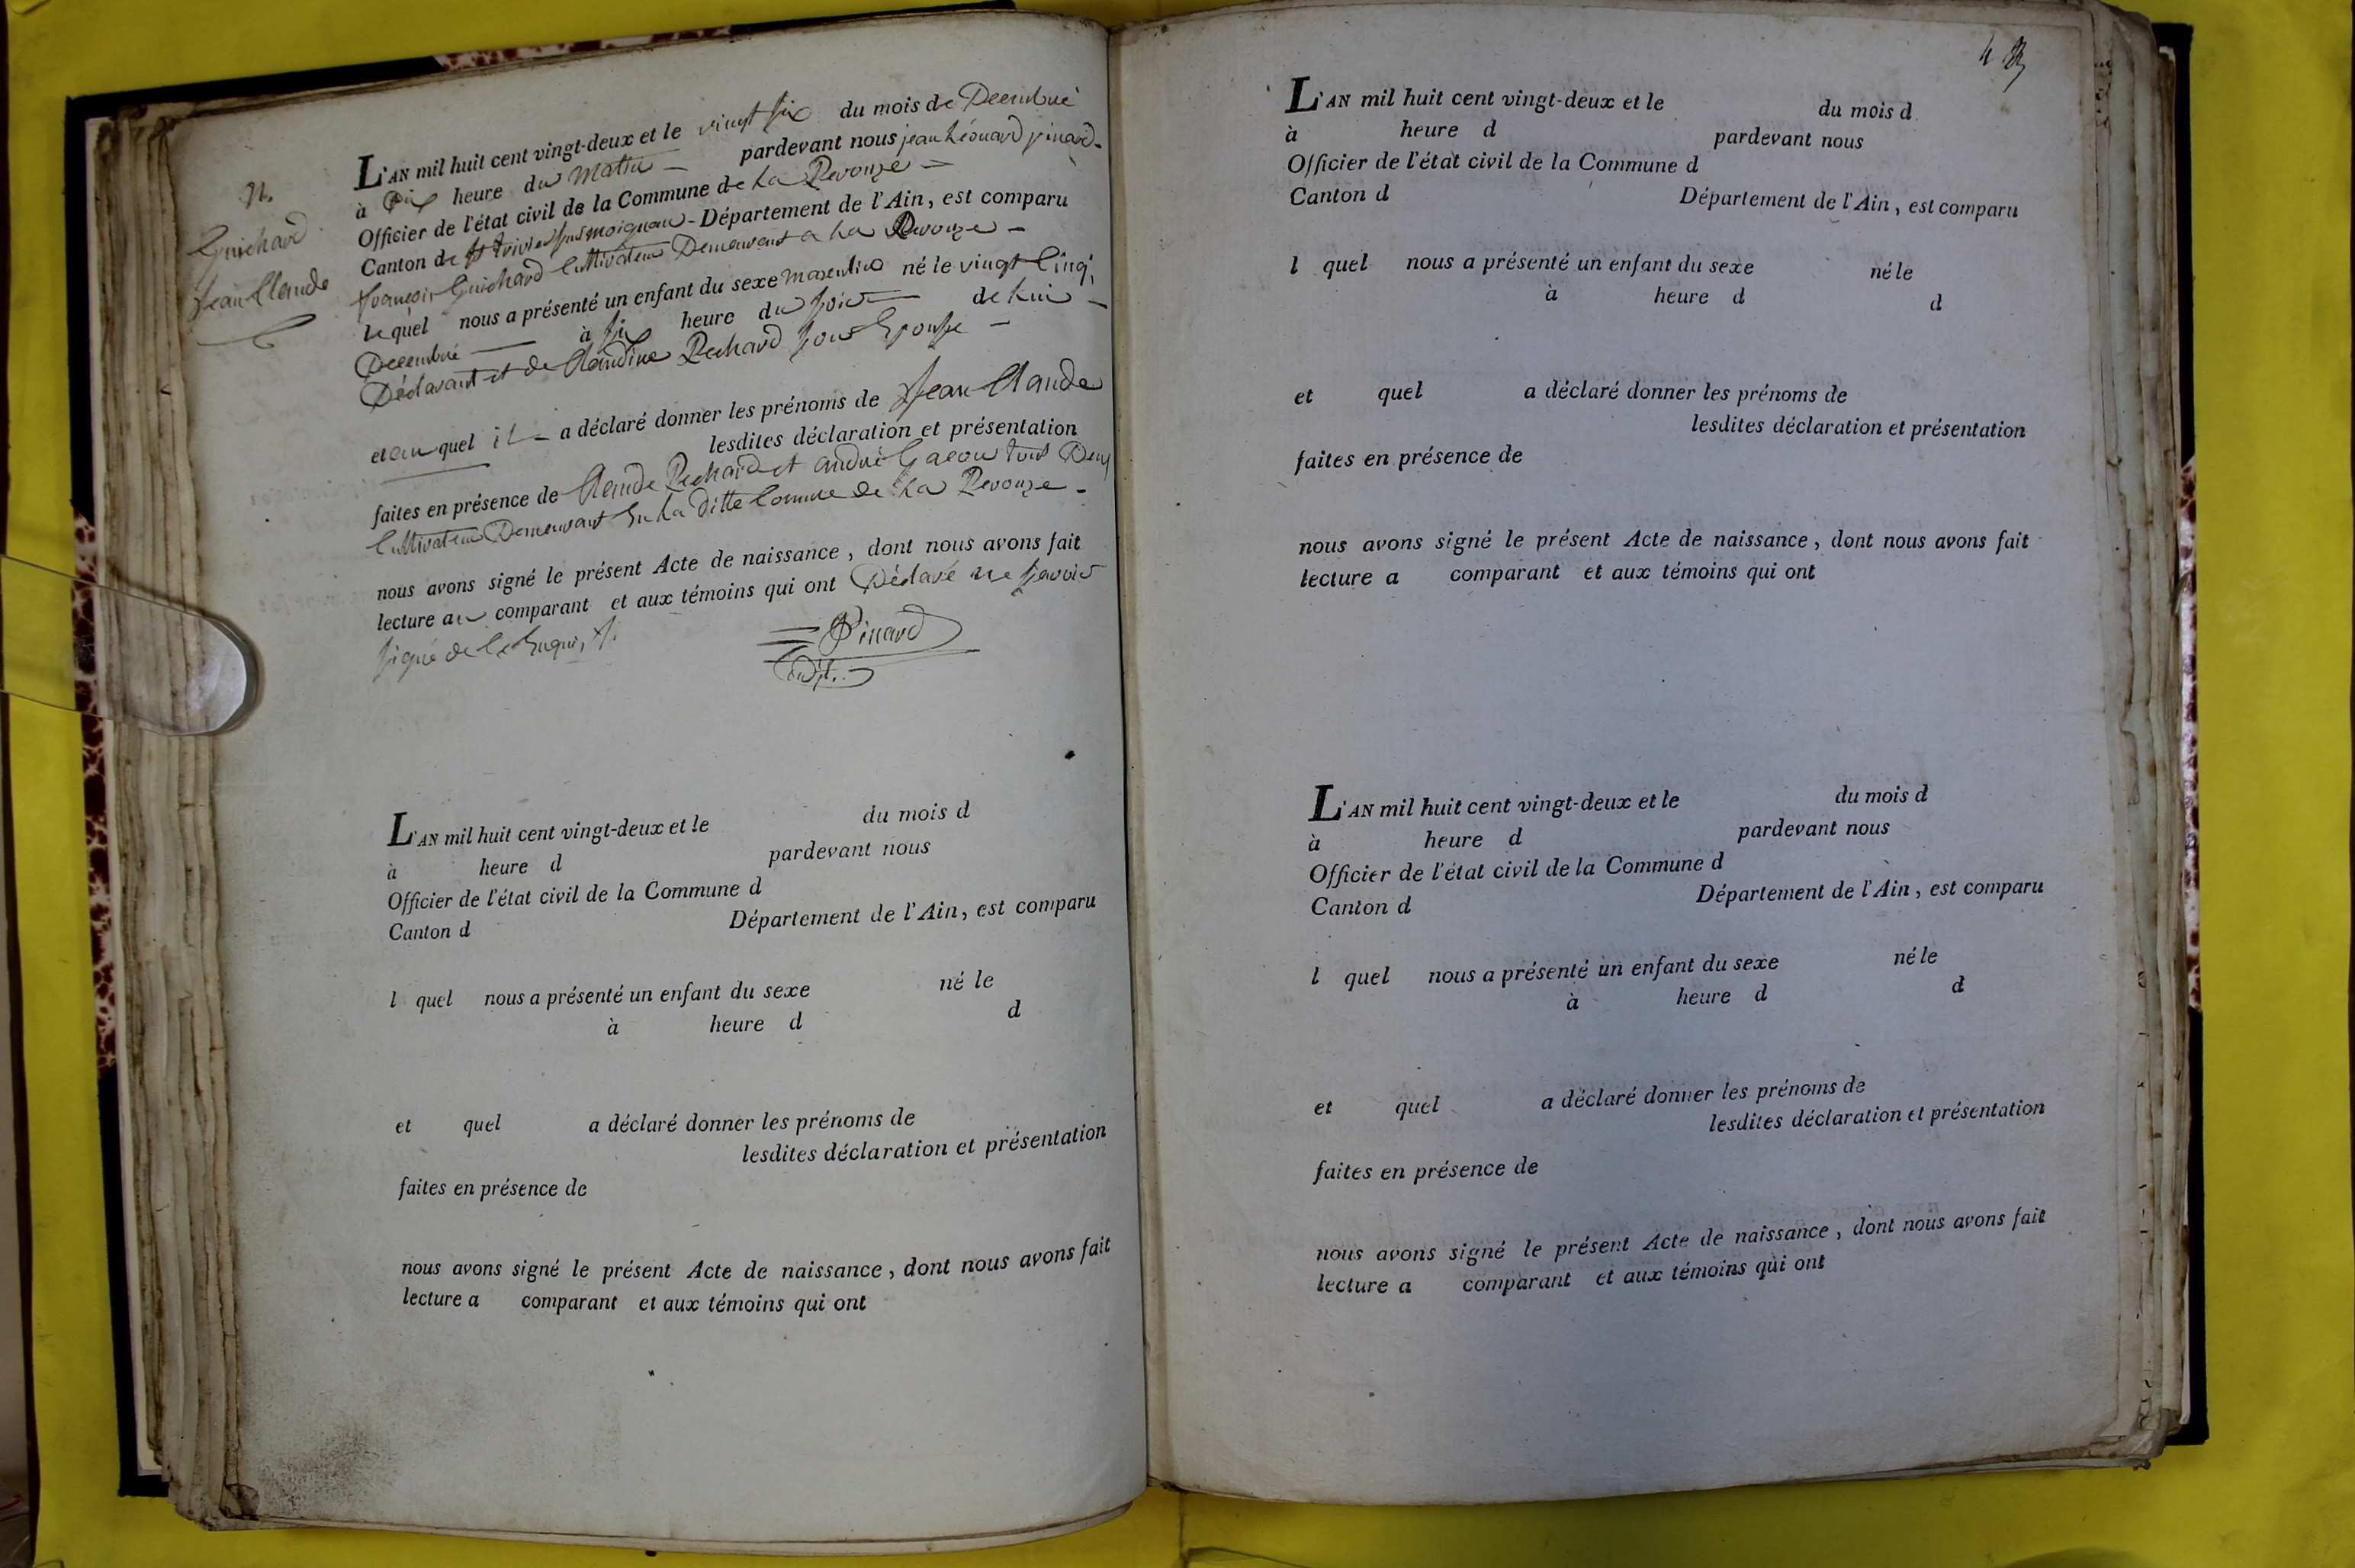 Guichard
Jean Claude
L'AN mil huit cent vingt-deux et le vingt six du mois de Decembre
à Dix heure du Matin — pardevant nous jean Léonard pinard
Officier de l'état civil de la Commune de La Perouze —
Canton de St trivier sus moignan - Département de l'Ain, est comparu
francois Guichard Cultivateur Demeurant a La Perouze —
lequel nous a présenté un enfant du sexe masculin né le vingt Cinq
Decembre — à six heure du soir — de Lui —
Déclarant et de Claudine Pechard sont Epouse —
et au quel il — a déclaré donner les prénoms de Jean Claude
lesdites déclaration et présentation
faites en présence de Claude Pechard et andré Gacon tout Deux
Cultivateur Demeurant En La Ditte Comune de La Perouze -
nous avons signé le présent Acte de naissance, dont nous avons fait
lecture au comparant et aux témoins qui ont Déclaré ne savoir
signé de ce Enquis
Pinard
L'AN mil huit cent vingt-deux et le du mois d
à heure d pardevant nous
Officier de l'état civil de la Commune d
Canton d Département de l'Ain, est comparu
l quel nous a présenté un enfant du sexe né le
à heure d d
et quel a déclaré donner les prénoms de
lesdites déclaration et présentation
faites en présence de
nous avons signé le présent Acte de naissance, dont nous avons fait
lecture a comparant et aux témoins qui ont
L'AN mil huit cent vingt-deux et le du mois d
à heure d pardevant nous
Officier de l'état civil de la Commune d
Canton d Département de l'Ain, est comparu
l quel nous a présenté un enfant du sexe né le
à heure d d
et quel a déclaré donner les prénoms de
lesdites déclaration et présentation
faites en présence de
nous avons signé le présent Acte de naissance, dont nous avons fait
lecture a comparant et aux témoins qui ont
L'AN mil huit cent vingt-deux et le du mois d
à heure d pardevant nous
Officier de l'état civil de la Commune d
Canton d Département de l'Ain, est comparu
l quel nous a présenté un enfant du sexe né le
à heure d d
et quel a déclaré donner les prénoms de
lesdites déclaration et présentation
faites en présence de
nous avons signé le présent Acte de naissance, dont nous avons fait
lecture a comparant et aux témoins qui ont